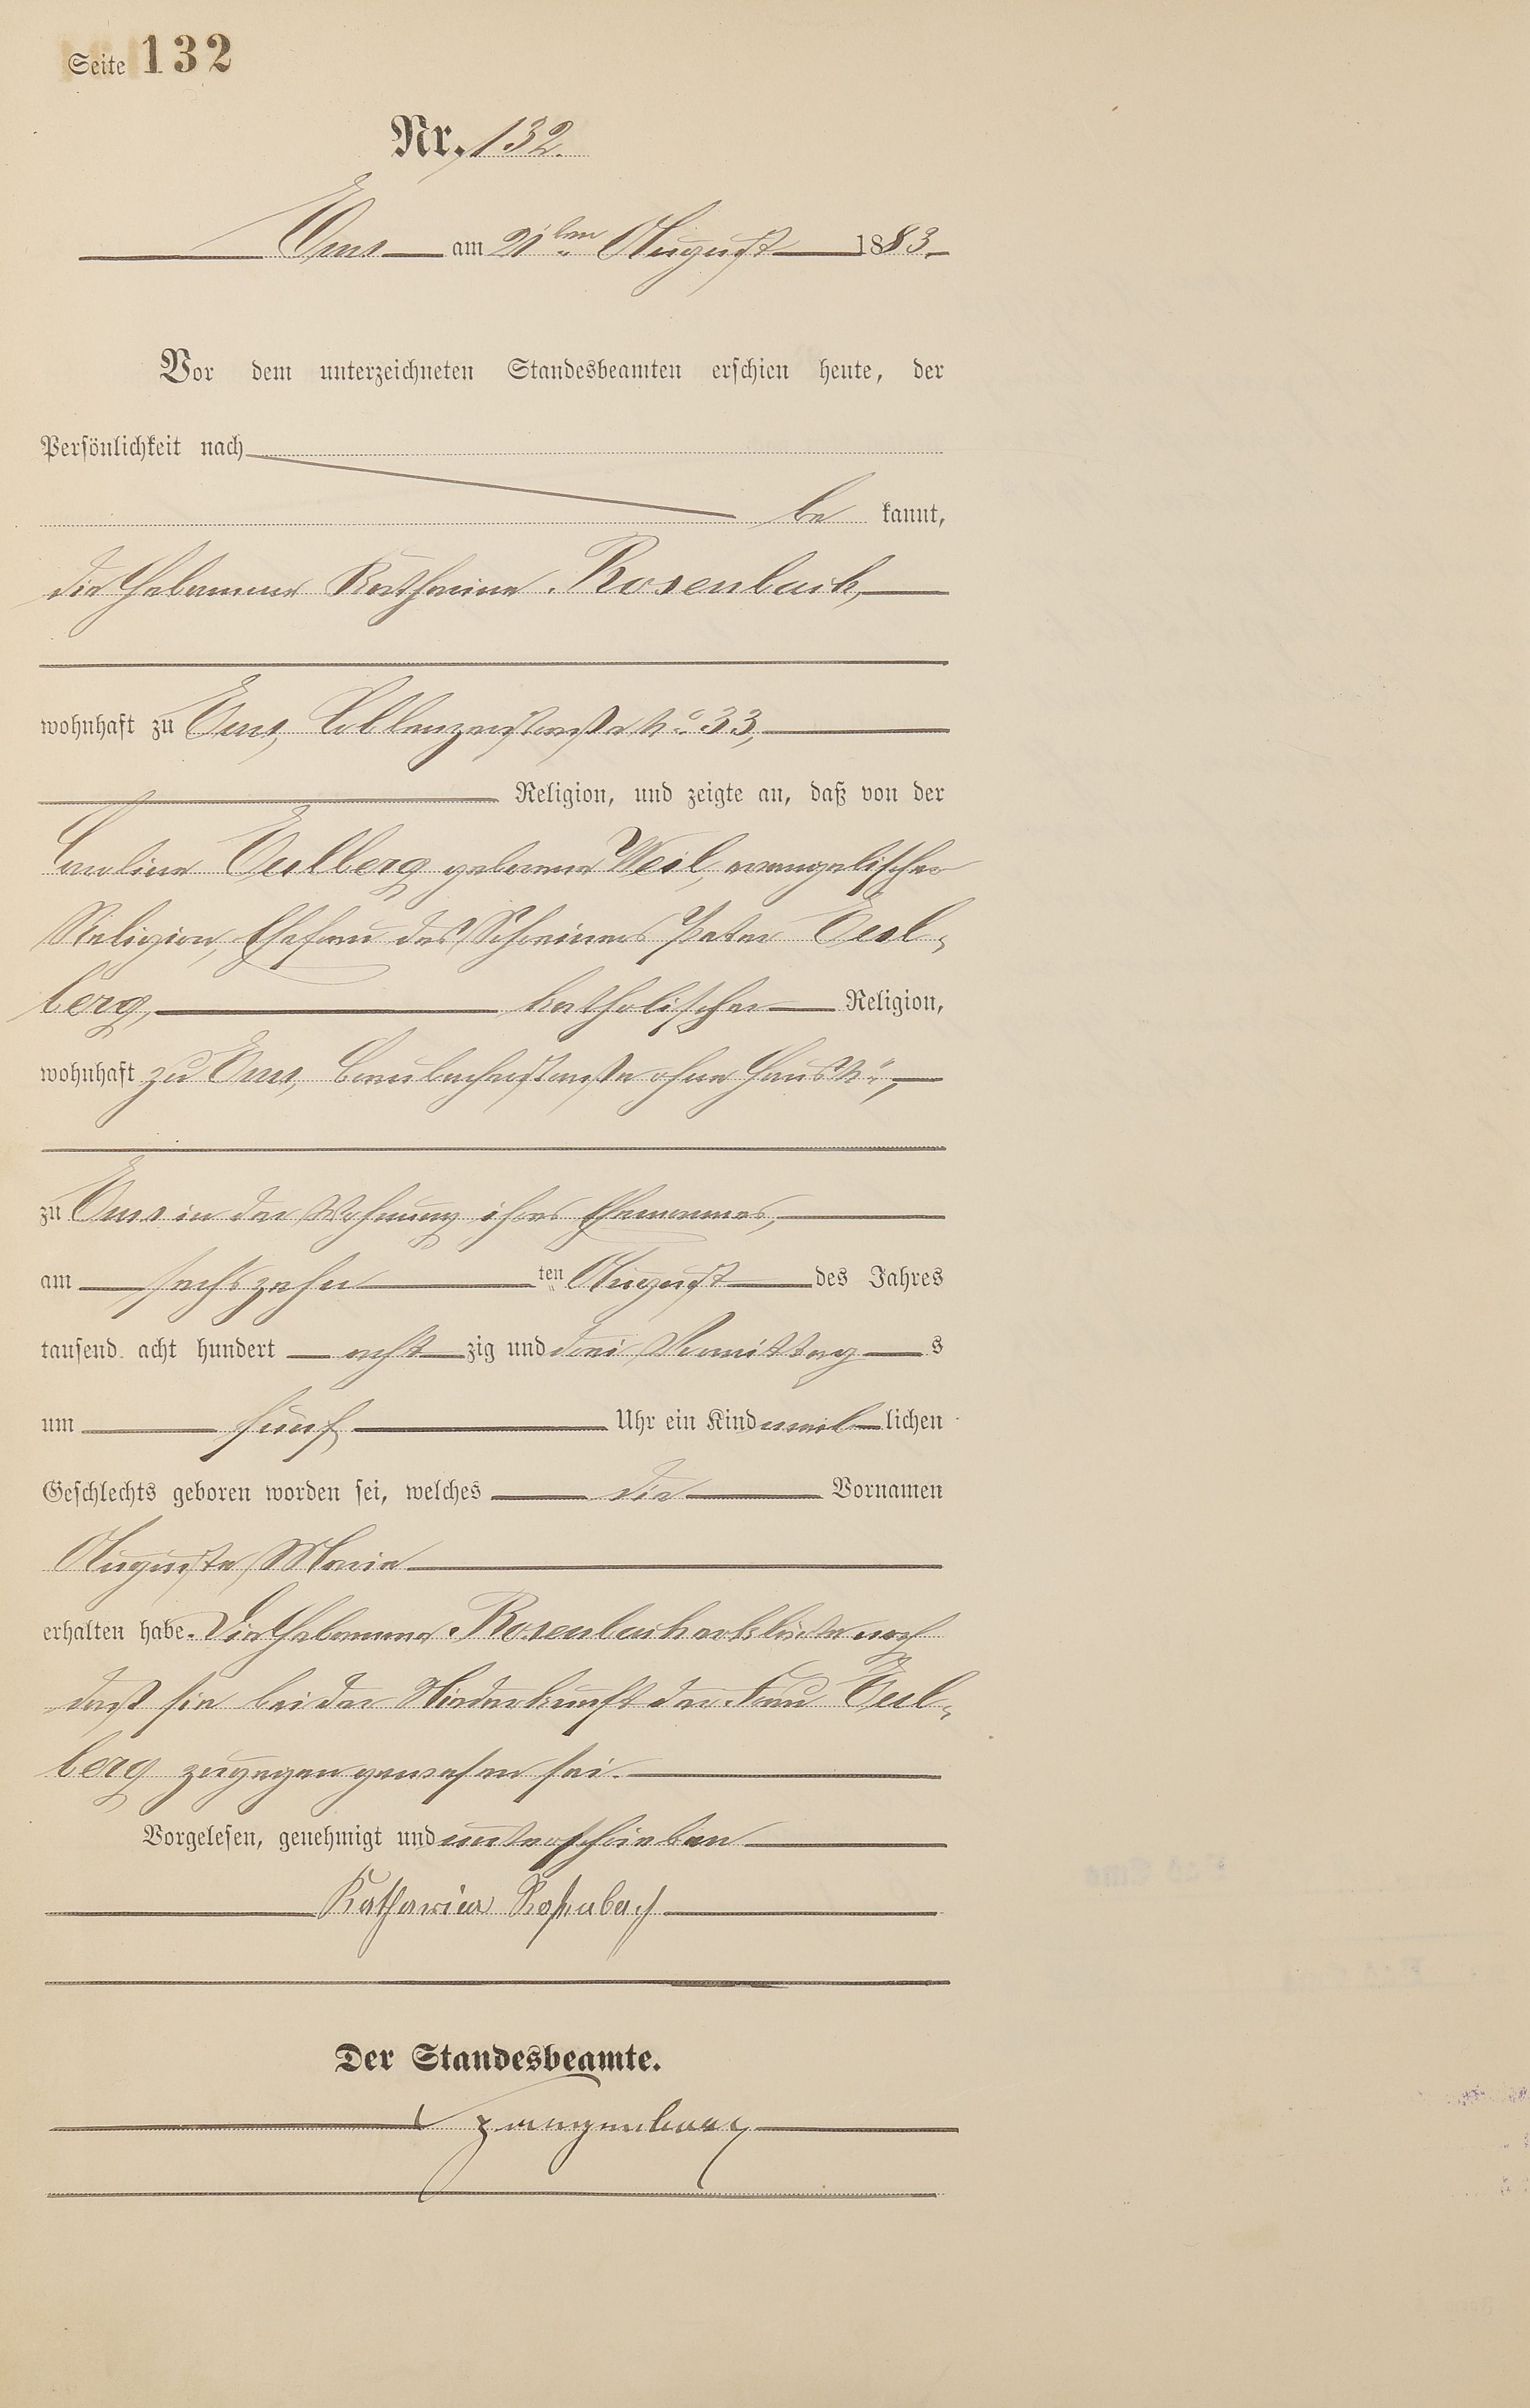 Seite 132
Nr. 132.
Ems am 21ten August 1883.
Vor dem unterzeichneten Standesbeamten erschien heute, der
Persönlichkeit nach
be kannt,
die Hebamme Katharina Rosenbach,
wohnhaft zu Ems, Coblenzerstraße No 33,
Religion, und zeigte an, daß von der
Caroline Eulberg geborene Weil, evangelischer
Religion, Ehefrau des Schreiners Peter Eul-
berg, katholischer Religion,
wohnhaft zu Ems, Braubacherstraße ohne Haus No,
zu Ems in der Wohnung ihres Ehemannes,
am sechszehn ten August des Jahres
tausend acht hundert acht zig und drei Vormittag s
um fünf Uhr ein Kind weib lichen
Geschlechts geboren worden sei, welches die Vornamen
Auguste Maria
erhalten habe. Die Hebamme Rosenbach erklärte noch
daß sie bei der Niederkunft der Frau Eul-
berg zugegen gewesen sei.
Vorgelesen, genehmigt und unterschrieben
Katharina Rosenbach
Der Standesbeamte.